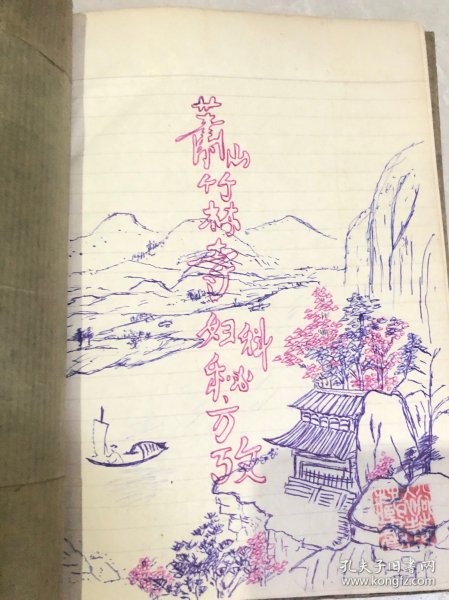 萧山竹林寺妇科秘方考
孔夫子旧书网
www.kongfz.com